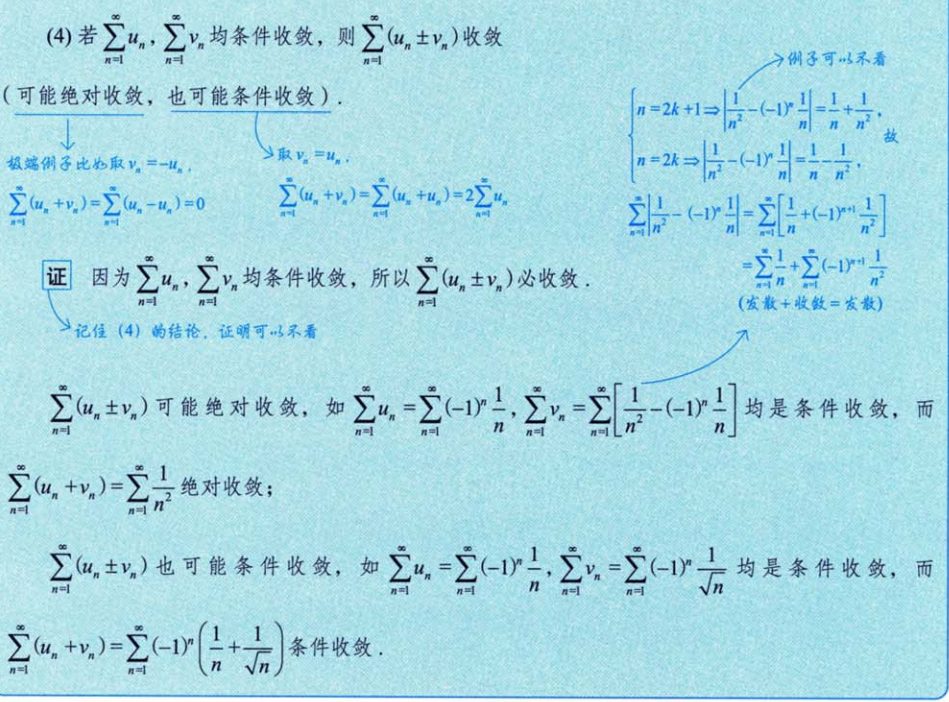 (4) 若 $\sum_{n=1}^{\infty} u_n$, $\sum_{n=1}^{\infty} v_n$ 均条件收敛，则 $\sum_{n=1}^{\infty} (u_n \pm v_n)$ 收敛
(可能绝对收敛，也可能条件收敛).
极端例子比如取 $v_n = -u_n$,
$\sum_{n=1}^{\infty} (u_n + v_n) = \sum_{n=1}^{\infty} (u_n - u_n) = 0$
取 $v_n = u_n$,
$\sum_{n=1}^{\infty} (u_n + v_n) = \sum_{n=1}^{\infty} (u_n + u_n) = 2\sum_{n=1}^{\infty} u_n$
例子可以不看
$n = 2k+1 \Rightarrow \left| \frac{1}{n^2} - (-1)^n \frac{1}{n} \right| = \frac{1}{n} + \frac{1}{n^2}$,
$n = 2k \Rightarrow \left| \frac{1}{n^2} - (-1)^n \frac{1}{n} \right| = \frac{1}{n} - \frac{1}{n^2}$,
故
$\sum_{n=1}^{\infty} \left| \frac{1}{n^2} - (-1)^n \frac{1}{n} \right| = \sum_{n=1}^{\infty} \left[ \frac{1}{n} + (-1)^{n+1} \frac{1}{n^2} \right]$
$= \sum_{n=1}^{\infty} \frac{1}{n} + \sum_{n=1}^{\infty} (-1)^{n+1} \frac{1}{n^2}$
(发散+收敛=发散)
证 因为 $\sum_{n=1}^{\infty} u_n$, $\sum_{n=1}^{\infty} v_n$ 均条件收敛，所以 $\sum_{n=1}^{\infty} (u_n \pm v_n)$ 必收敛.
记住 (4) 的结论，证明可以不看
$\sum_{n=1}^{\infty} (u_n \pm v_n)$ 可能绝对收敛，如 $\sum_{n=1}^{\infty} u_n = \sum_{n=1}^{\infty} (-1)^n \frac{1}{n}$, $\sum_{n=1}^{\infty} v_n = \sum_{n=1}^{\infty} \left[ \frac{1}{n^2} - (-1)^n \frac{1}{n} \right]$ 均是条件收敛，而
$\sum_{n=1}^{\infty} (u_n + v_n) = \sum_{n=1}^{\infty} \frac{1}{n^2}$ 绝对收敛；
$\sum_{n=1}^{\infty} (u_n \pm v_n)$ 也可能条件收敛，如 $\sum_{n=1}^{\infty} u_n = \sum_{n=1}^{\infty} (-1)^n \frac{1}{n}$, $\sum_{n=1}^{\infty} v_n = \sum_{n=1}^{\infty} (-1)^n \frac{1}{\sqrt{n}}$ 均是条件收敛，而
$\sum_{n=1}^{\infty} (u_n + v_n) = \sum_{n=1}^{\infty} (-1)^n \left( \frac{1}{n} + \frac{1}{\sqrt{n}} \right)$ 条件收敛.